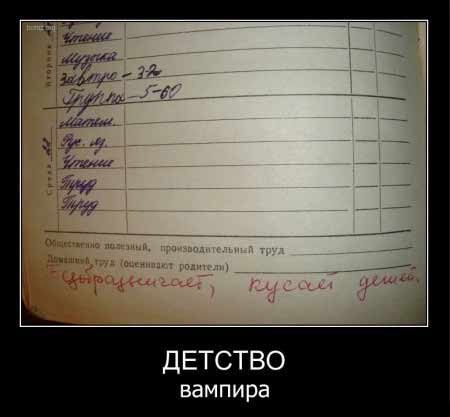 Вторник
Чтение
Музыка
Завтра – 32
Группа – 5-60
Среда
Матем.
Рус. яз.
Чтение
Труд
Труд
Общественно полезный, производительный труд
Домашний труд (оценивают родители)
кусает детей.
ДЕТСТВО
вампира